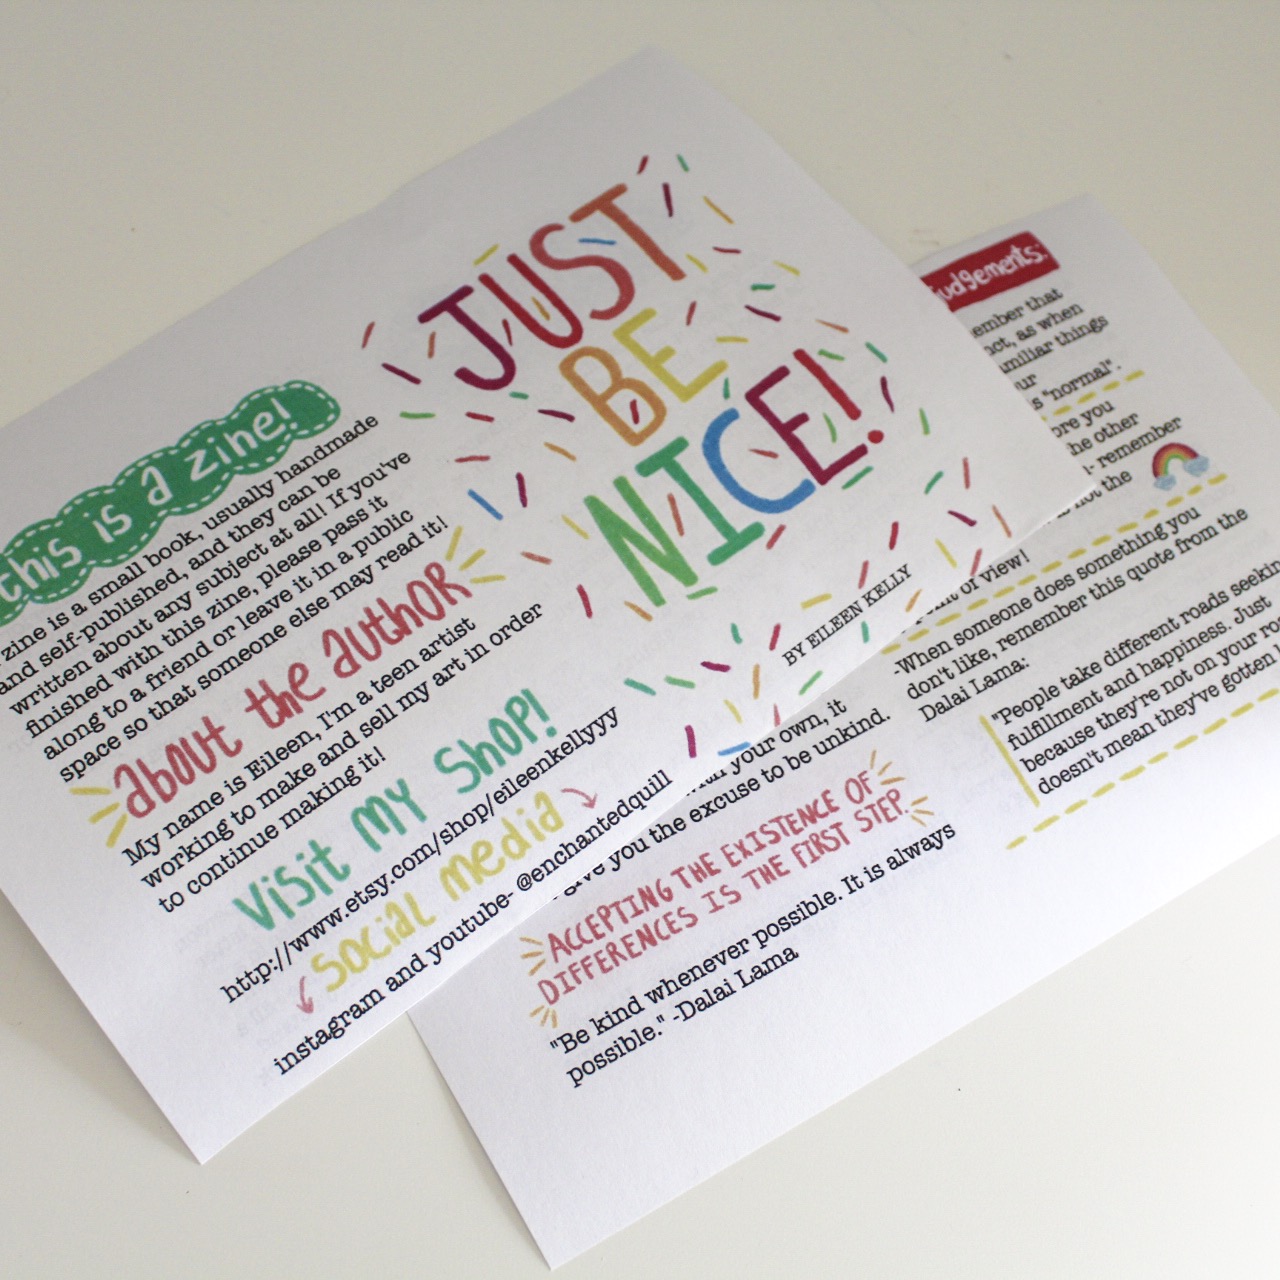 this is a zine!
zine is a small book, usually handmade
and self-published, and they can be
written about any subject at all! If you've
finished with this zine, please pass it
along to a friend or leave it in a public
space so that someone else may read it!
about the author
My name is Eileen, I'm a teen artist
working to make and sell my art in order
to continue making it!
visit my shop!
http://www.etsy.com/shop/eileenkellyyy
social media
instagram and youtube- @enchantedquill
JUST
BE
NICE!
BY EILEEN KELLY
with your own, it
give you the excuse to be unkind.
ACCEPTING THE EXISTENCE OF
DIFFERENCES IS THE FIRST STEP.
"Be kind whenever possible. It is always
possible." -Dalai Lama
Judgements:
that
not, as when
things
"normal".
you
the other
- remember
not the
point of view!
-When someone does something you
don't like, remember this quote from the
Dalai Lama:
"People take different roads seekin
fulfillment and happiness. Just
because they're not on your roa
doesn't mean they've gotten l